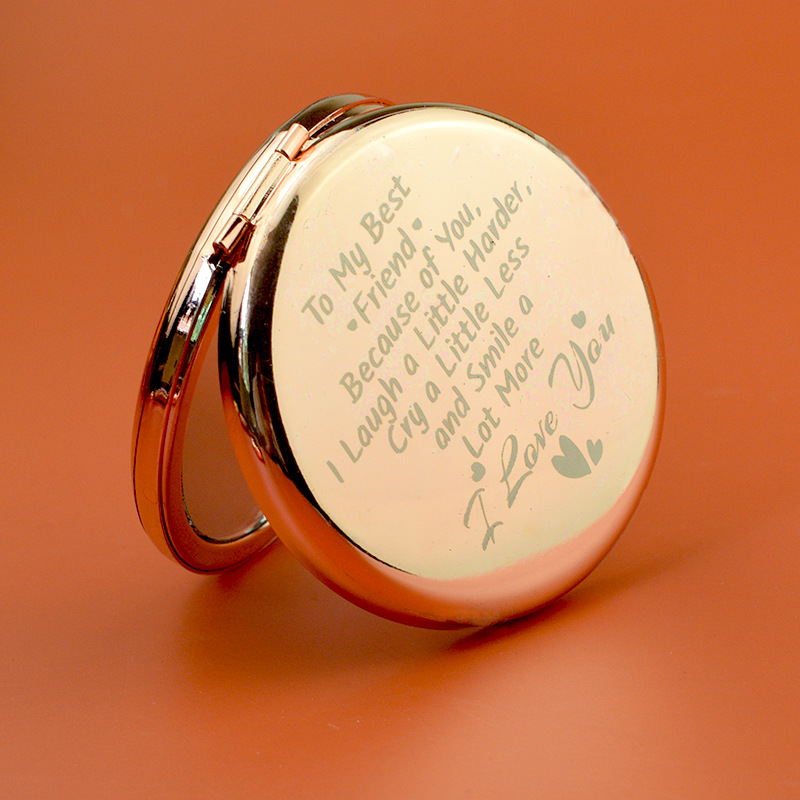 To My Best
Friend
Because of You,
I Laugh a Little Harder,
Cry a Little Less
and Smile a
Lot More
I Love You